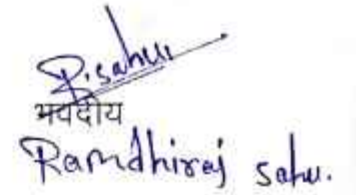 R.sahu
भवदीय
Ramdhiraj sahu.